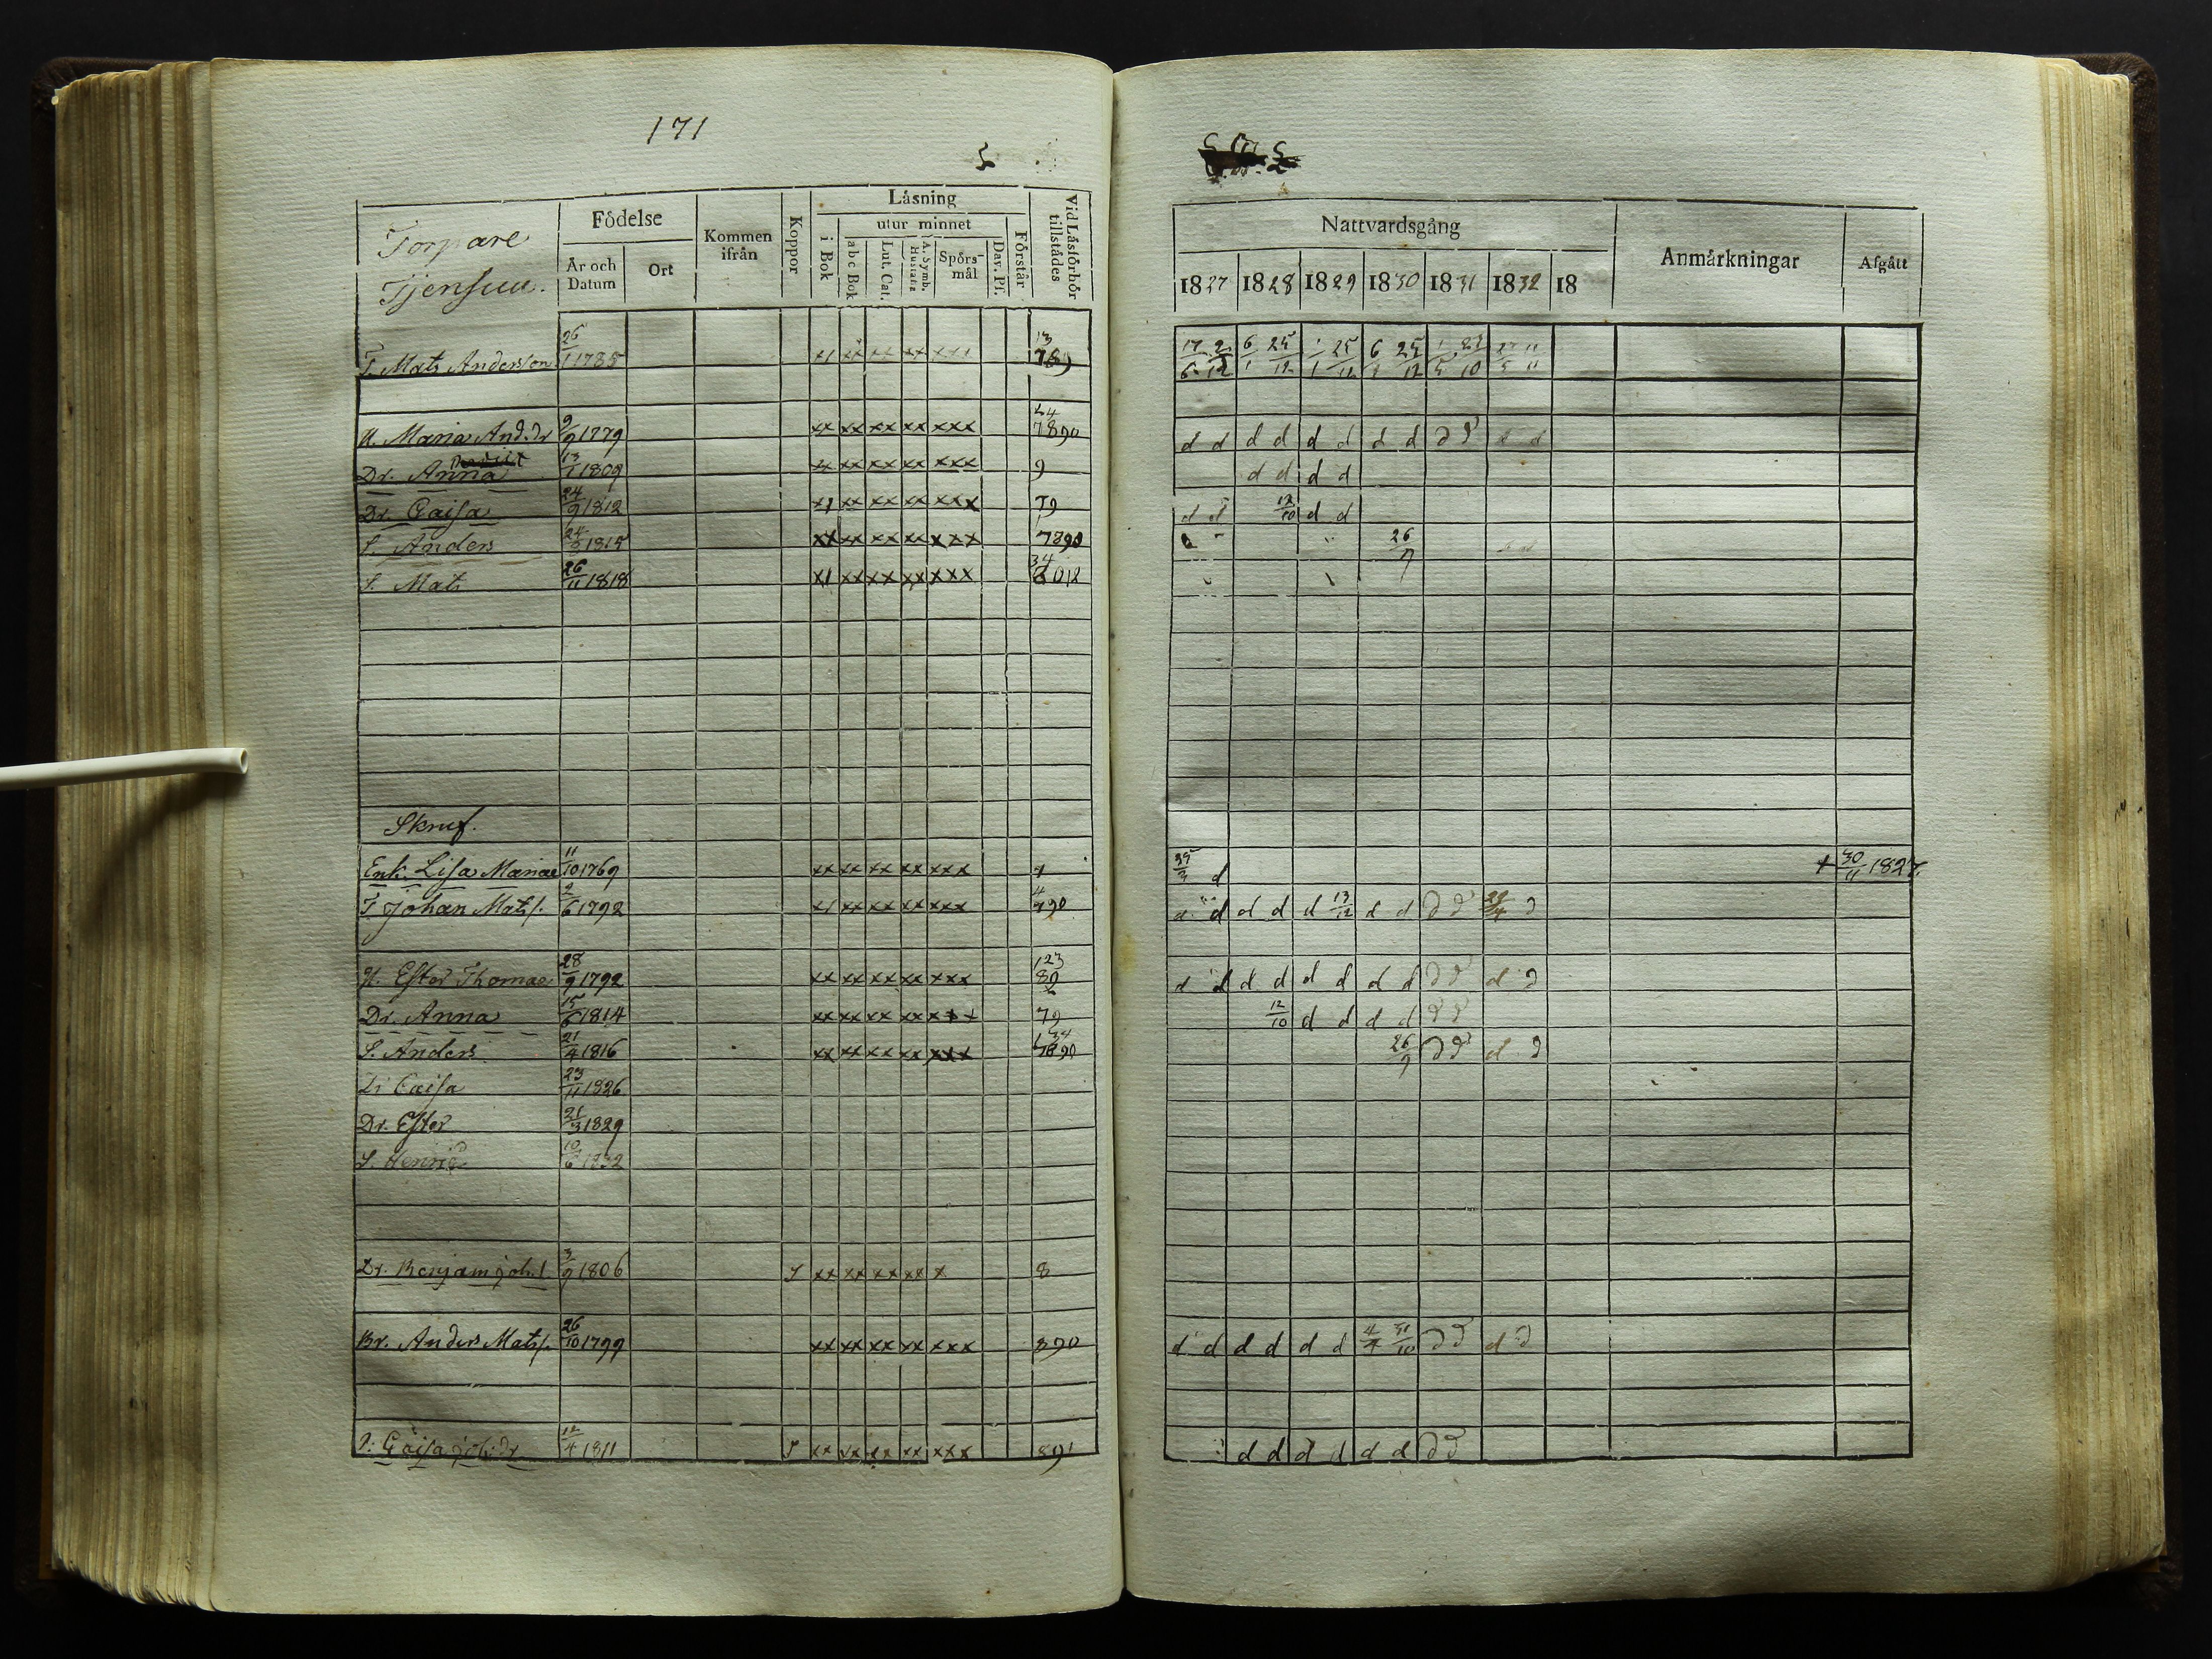 171
Torpare
Tjensuu.
Födelse
År och Datum
Ort
Kommen ifrån
Koppor
Läsning
i Bok
utur minnet
abc Bok
Lut. Cat.
A. Symb. Hustafla
Spörs-mål
Dav. Ps.
Förstår
Vid Läsförhör tillstädes
Nattvardsgång
1827 1828 1829 1830 1831 1832 18
Anmärkningar
Afgått
T. Mats Andersson 26/1 1785 x1 xx xx xx xxx 13 789 17/6 2/12 6/1 25/12 1/1 25/12 6/1 25/12
H. Maria And.dr 9/9 1779 xx xx xx xx xxx 7890 d d d d d d d d d d d d
Dr. Anna 13/1 1809 xx xx xx xx xxx 9 d d d d
Dr. Caisa 24/9 1812 x1 xx xx xx xxx 79 d d 12/10 d d
S. Anders 24/9 1815 xx xx xx xx xxx 7890 26/9
S. Mats 26/11 1818 x1 xx xx xx xxx 34
Skruf.
Enk. Lisa Mariae 11/10 1769 xx xx xx xx xxx 7 25/3 d † 30/11 1827.
T Johan Mats s. 2/6 1792 x1 xx xx xx xxx 4 790 d d d d d 13/12 d d d d 29/4 d
H. Ester Thomae 28/9 1792 xx xx xx xx xxx 123 89 d d d d d d d d d d d d
Dr. Anna 15/6 1814 xx xx xx xx xxx 79 12/10 d d d d d d
S. Anders 21/4 1816 xx xx xx xx xxx 7890 26/9 d d d d
Dr Caisa 23/11 1826
Dr. Ester 21/3 1829
S. Henric 10/6 1832
Dr. Benjam Joh. s. 3/9 1806 S xx xx xx xx x 8
Br. Anders Mats s. 26/10 1799 xx xx xx xx xxx 890 d d d d d d 4/4 31/10 d d d d
P: Caisa Joh: dr 12/4 1811 S xx xx xx xx xxx 891 d d d d d d d d